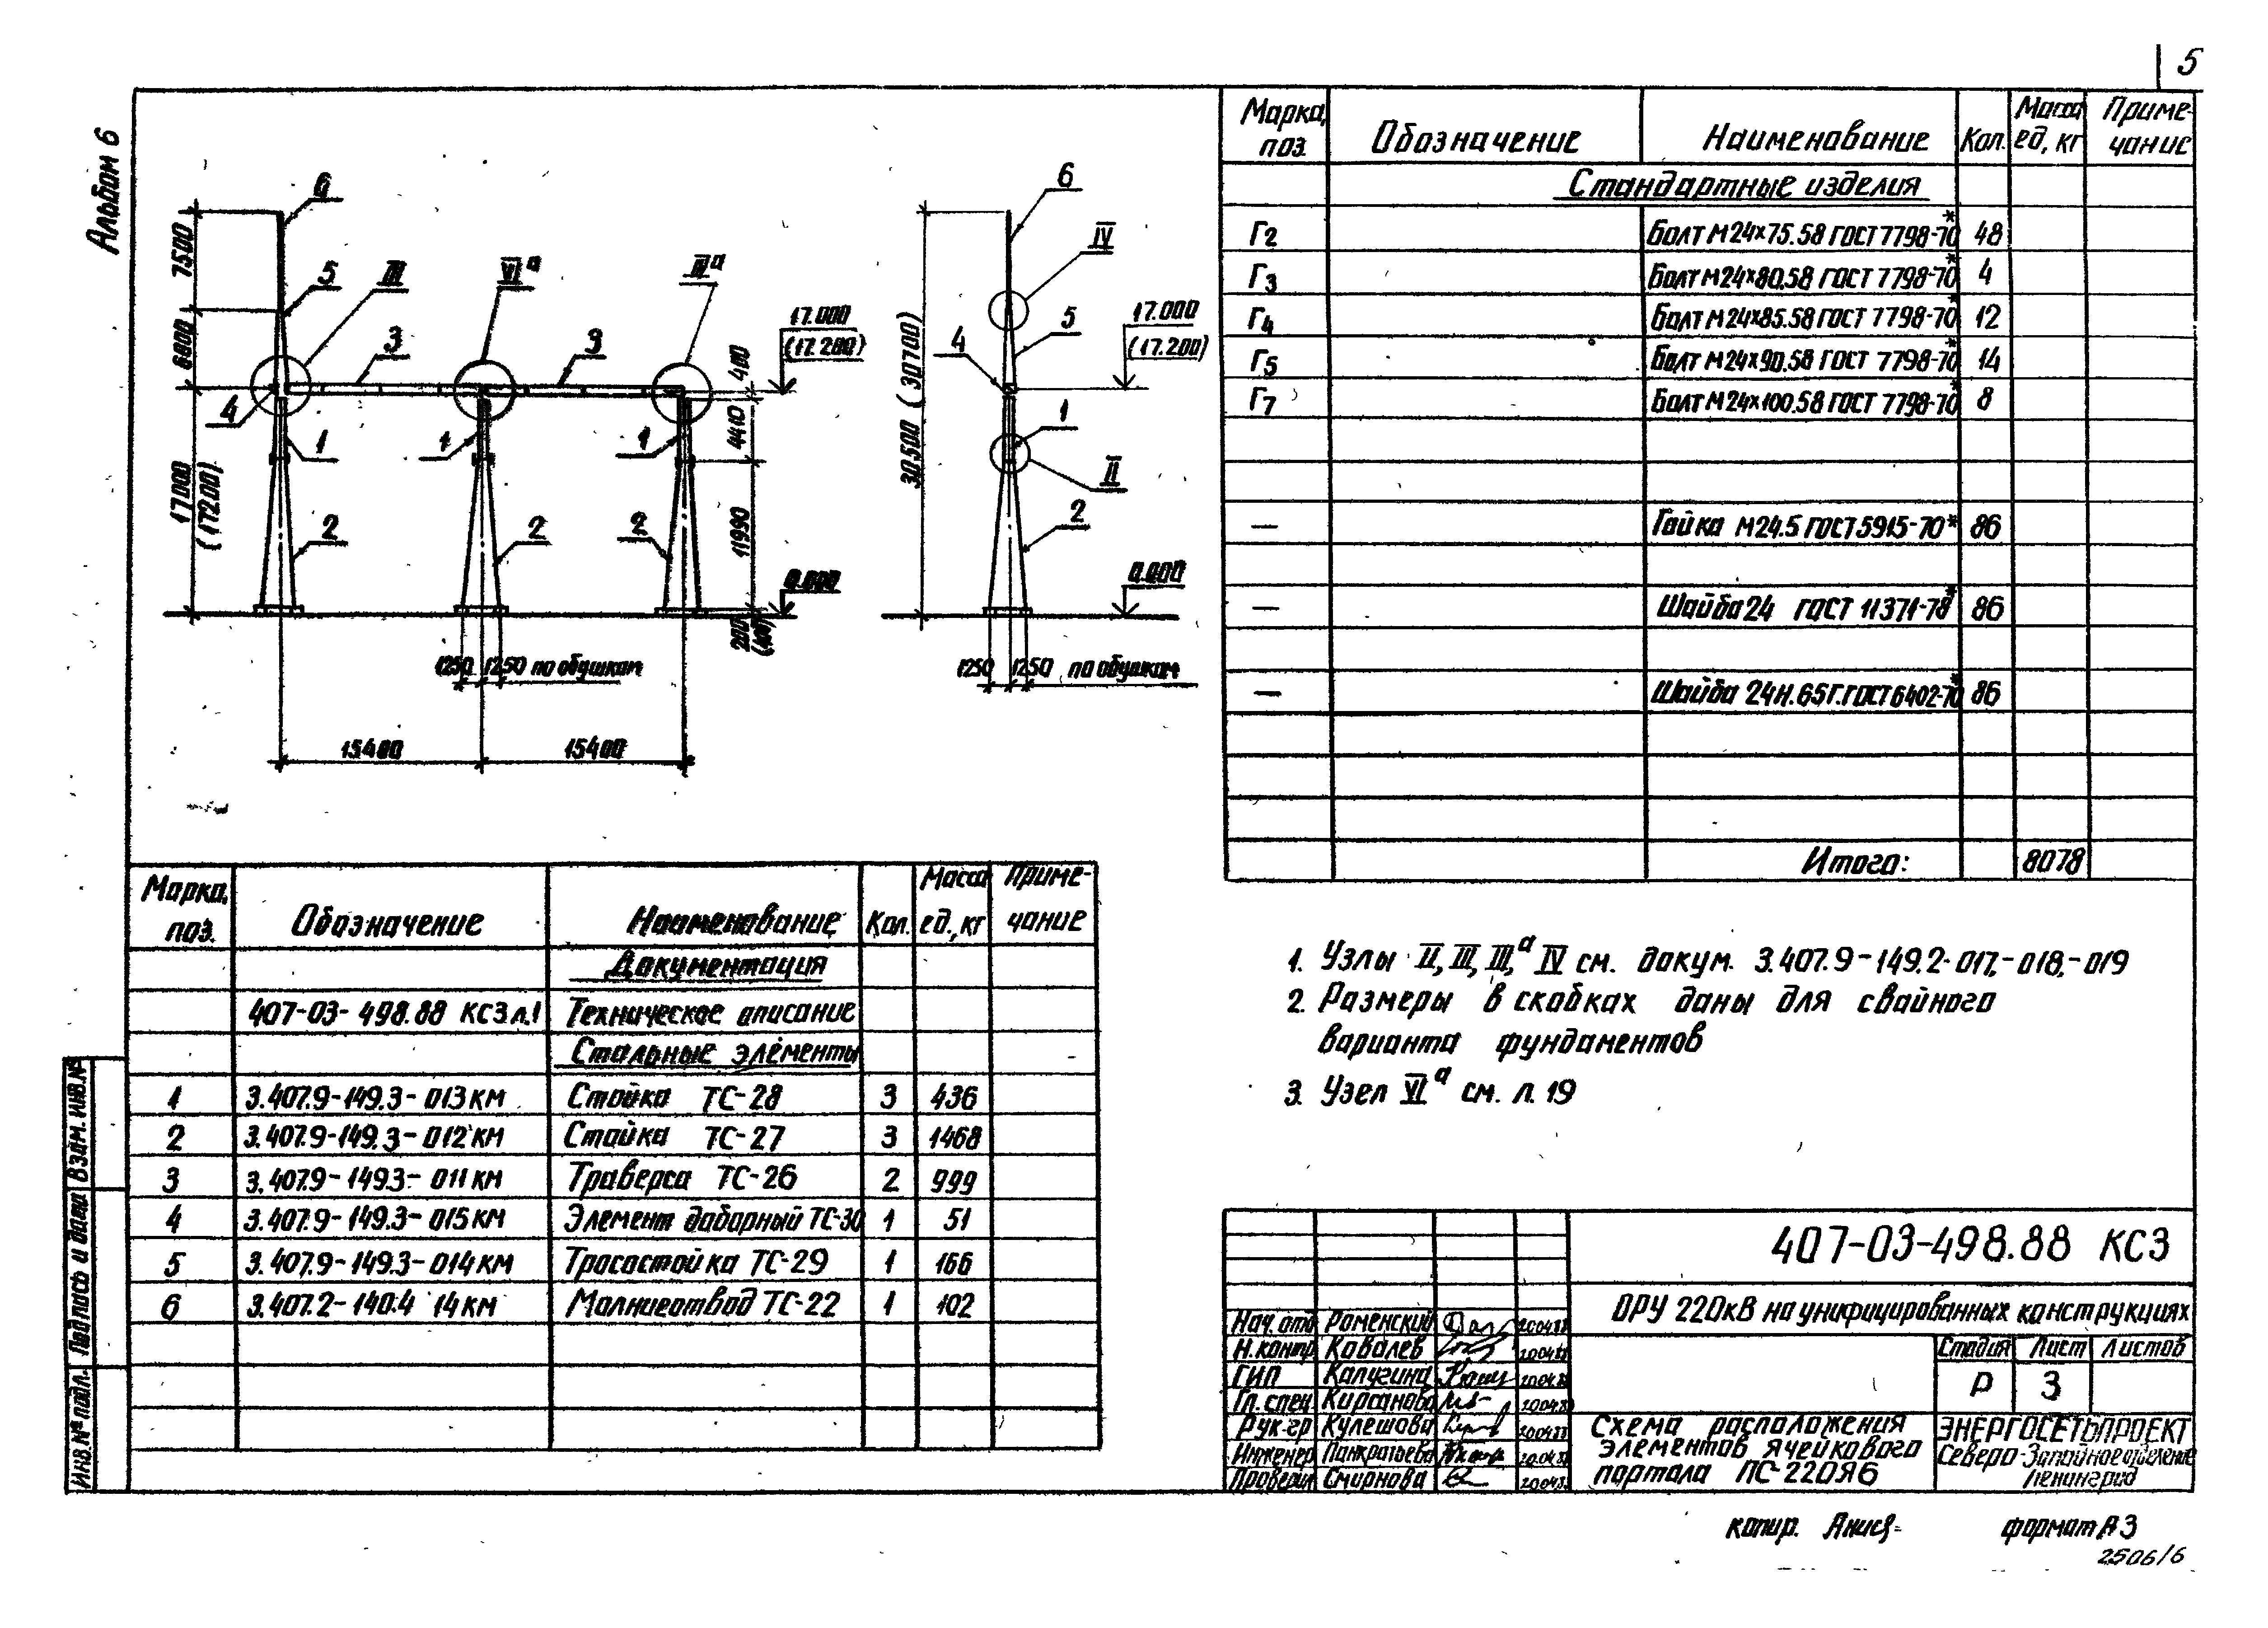 5
Альбом 6
6
5
III
VIᵃ
IIIᵃ
3
3
4
1
1
1
2
2
2
7500
6000
17000
(17200)
17.000
(17.200)
400
4410
11990
0.000
200
(400)
1250 1250 по обушкам
15400 15400
6
IV
5
4
1
II
2
30500 (30700)
17.000
(17.200)
0.000
1250 1250 по обушкам
Марка, поз. Обозначение Наименование Кол. Масса ед, кг Приме-чание
Стандартные изделия
Г2 Болт М24×75.58 ГОСТ 7798-70* 48
Г3 Болт М24×80.58 ГОСТ 7798-70* 4
Г4 Болт М24×85.58 ГОСТ 7798-70* 12
Г5 Болт М24×90.58 ГОСТ 7798-70* 14
Г7 Болт М24×100.58 ГОСТ 7798-70* 8
— Гайка М24.5 ГОСТ 5915-70* 86
— Шайба 24 ГОСТ 11371-78* 86
— Шайба 24Н.65Г.ГОСТ 6402-70* 86
Итого: 8078
Марка, поз. Обозначение Наименование Кол. Масса ед., кг Приме-чание
Документация
407-03-498.88 КС3 л.1 Техническое описание
Стальные элементы
1 3.407.9-149.3-013КМ Стойка ТС-28 3 436
2 3.407.9-149.3-012КМ Стойка ТС-27 3 1468
3 3.407.9-149.3-011КМ Траверса ТС-26 2 999
4 3.407.9-149.3-015КМ Элемент доборный ТС-30 1 51
5 3.407.9-149.3-014КМ Тросостойка ТС-29 1 166
6 3.407.2-140.4 14КМ Молниеотвод ТС-22 1 102
1. Узлы II, III, IIIᵃ, IV см. докум. 3.407.9-149.2-017,-018,-019
2. Размеры в скобках даны для свайного
варианта фундаментов
3. Узел VIᵃ см. л. 19
Взам. инв.№
Подпись и дата
Инв.№ подл.
407-03-498.88 КС3
ОРУ 220кВ на унифицированных конструкциях
Нач. отд Роменский 20.04.88
Н. контр Ковалев 20.04.88
ГИП Калугина 20.04.88
Гл. спец Кирсанова 20.04.88
Рук. гр Кулешова 20.04.88
Инженер Панкратьева 20.04.88
Проверил Смирнова 20.04.88
Стадия Лист Листов
Р 3
Схема расположения
элементов ячейкового
портала ПС-220Я6
ЭНЕРГОСЕТЬПРОЕКТ
Северо-Западное отделение
Ленинград
копир. формат А3
2506/6